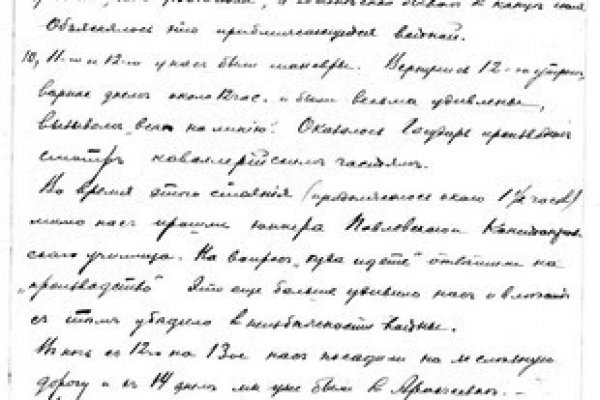 Объяснялось это приближающейся войной.
10, 11-го и 12-го у нас были маневры. Вернулись 12-го утром,
вернее днем около 12 час. и были весьма удивлены,
вызовом "всем на линию". Оказалось Государь производил
смотр кавалерийским частям.
Во время этого стояния (продолжалось около 1½ часов)
мимо нас прошли юнкера Павловского
ского училища. На вопрос "куда идете" ответили на
"производство" Это еще больше удивило нас и
с тем убедило в неизбежности войны.
В ночь с 12-го на 13-ое нас посадили на железную
дорогу и в 14 днем мы уже были в